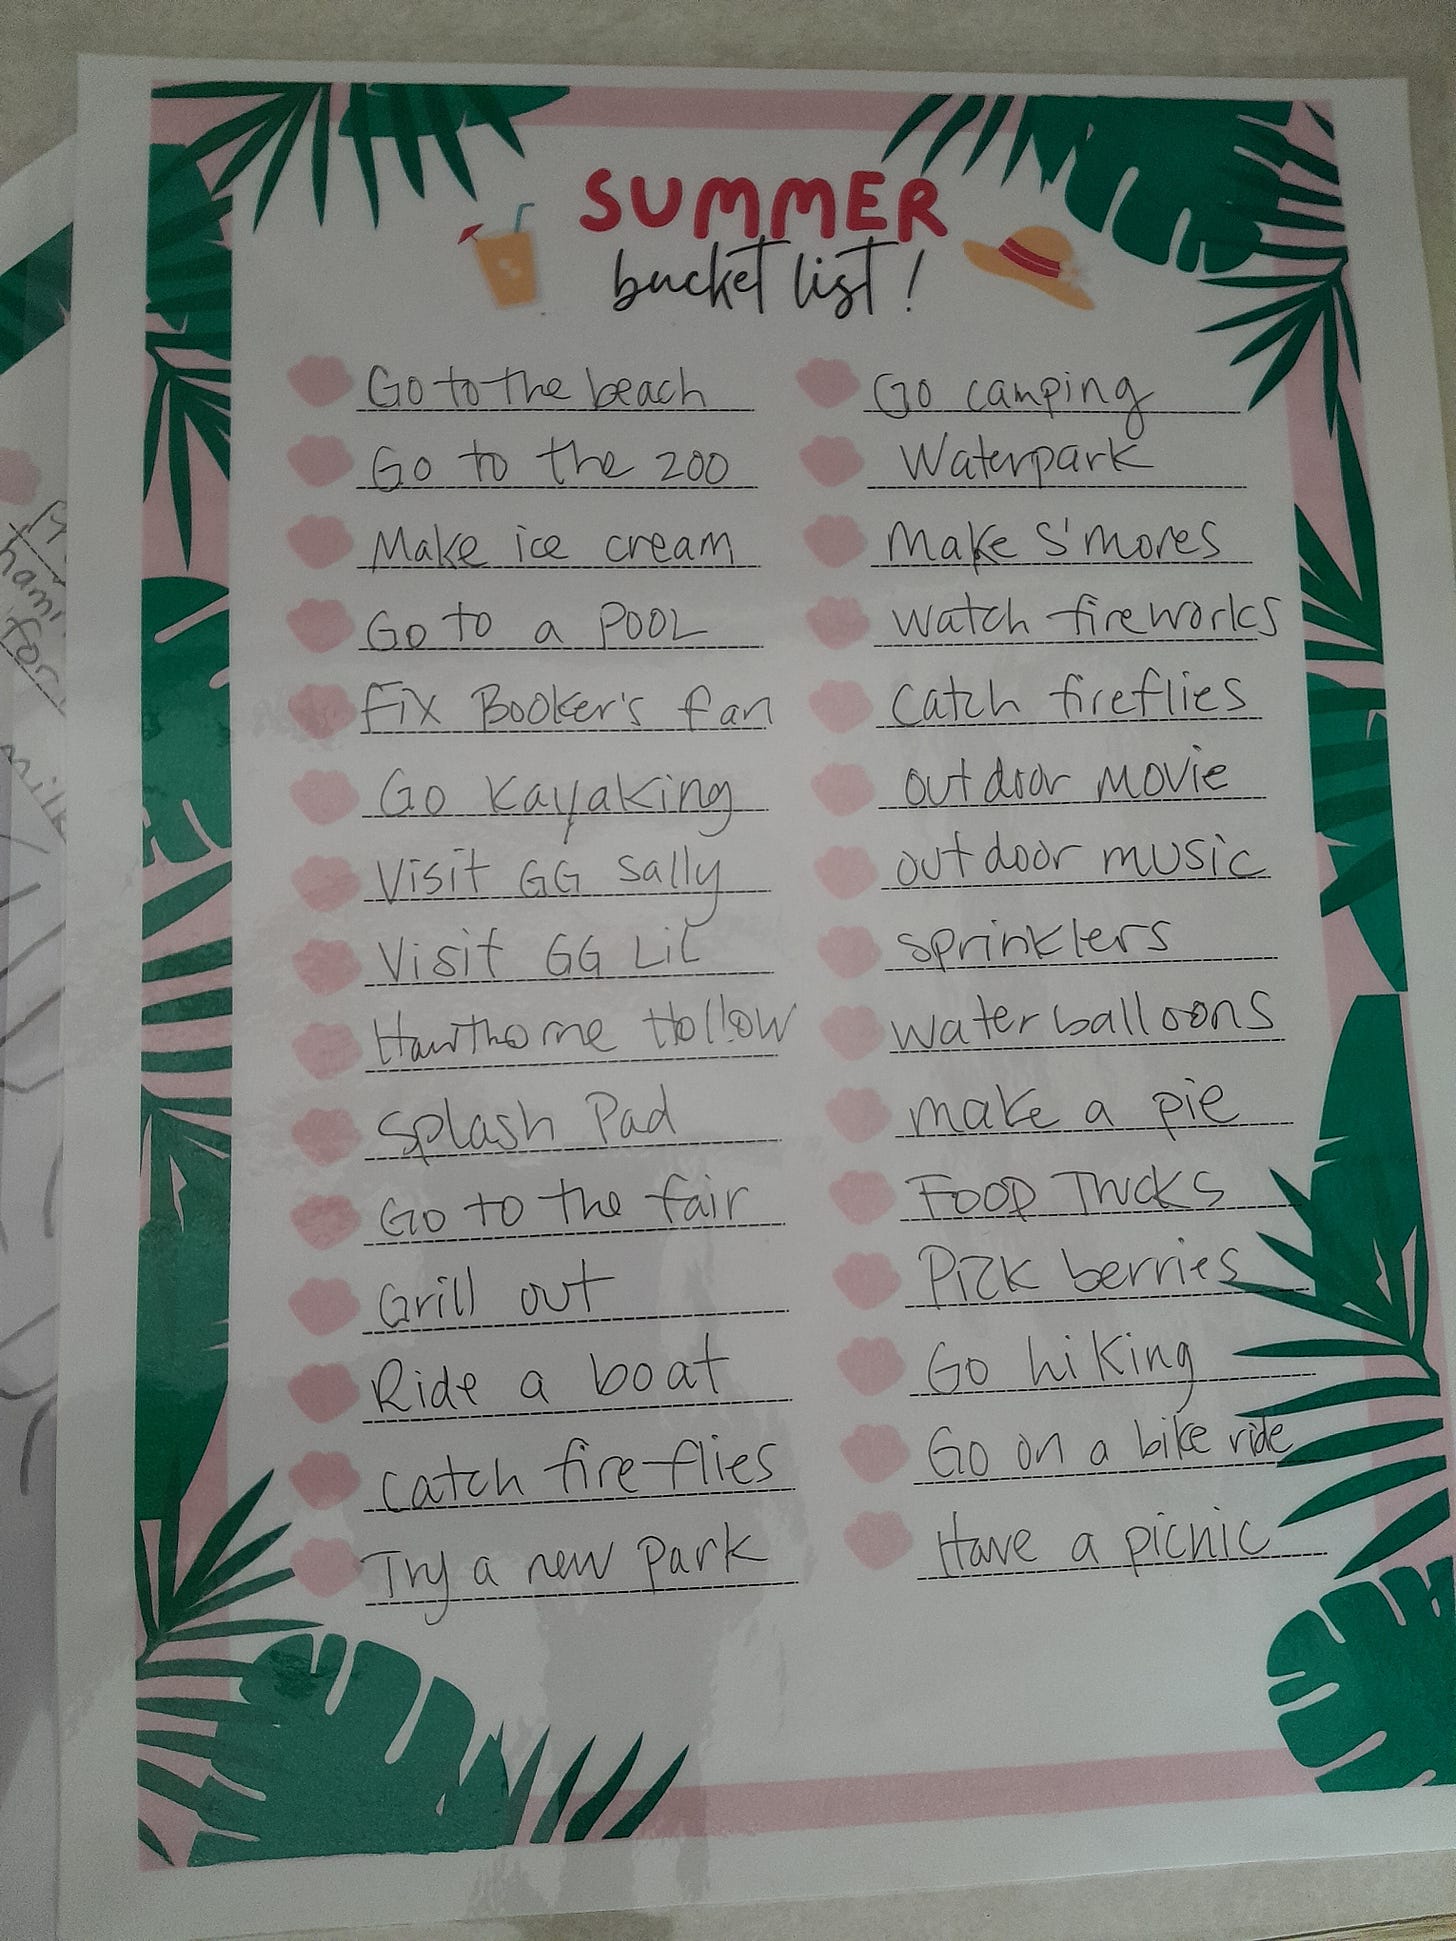 SUMMER
bucket list!
Go to the beach
Go to the zoo
Make ice cream
Go to a POOL
Fix Booker's fan
Go Kayaking
Visit GG Sally
Visit GG Lil
Hawthorne Hollow
Splash Pad
Go to the fair
Grill out
Ride a boat
Catch fire-flies
Try a new park
Go camping
Waterpark
Make S'mores
Watch fireworks
Catch fireflies
outdoor movie
outdoor music
Sprinklers
Water balloons
make a pie
FOOD Trucks
Pick berries
Go hiking
Go on a bike ride
Have a picnic
for